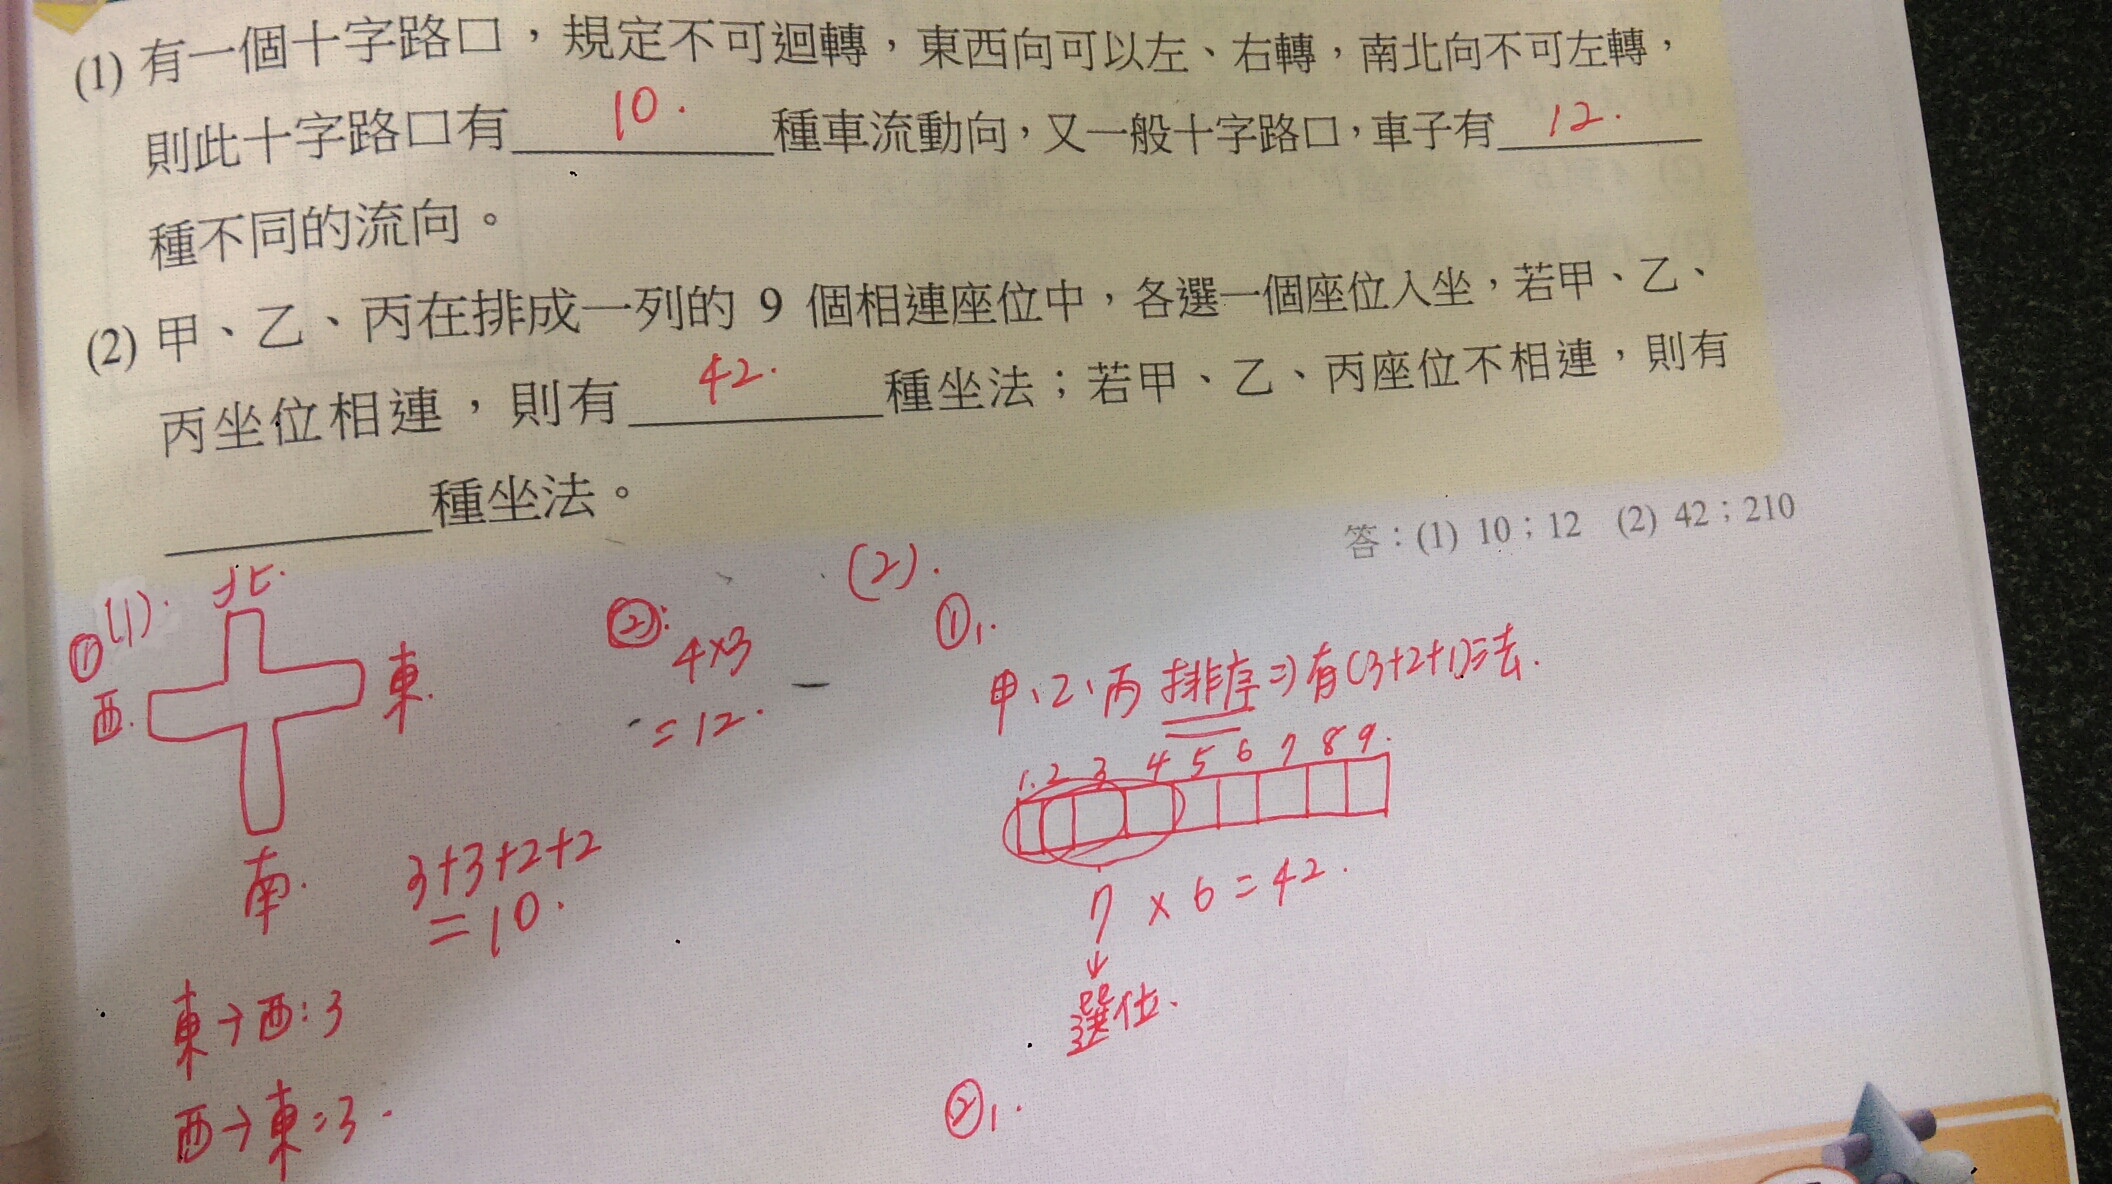 (1) 有一個十字路口，規定不可迴轉，東西向可以左、右轉，南北向不可左轉，
則此十字路口有 10. 種車流動向，又一般十字路口，車子有 12.
種不同的流向。
(2) 甲、乙、丙在排成一列的 9 個相連座位中，各選一個座位入坐，若甲、乙、
丙坐位相連，則有 42. 種坐法；若甲、乙、丙座位不相連，則有
種坐法。
答：(1) 10；12 (2) 42；210
(1).
①
北.
西.
東.
南.
3+3+2+2
=10.
東→西:3
西→東:3.
②:
4×3
=12.
(2).
①,.
甲、乙、丙 排序⇒有(3+2+1)法.
1. 2 3 4 5 6 7 8 9.
7 × 6 = 42.
↓
選位.
②,.